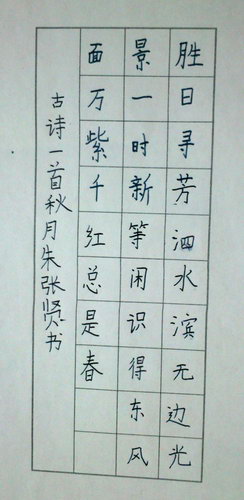 胜日寻芳泗水滨无边光
景一时新等闲识得东风
面万紫千红总是春
古诗一首秋月朱张贤书